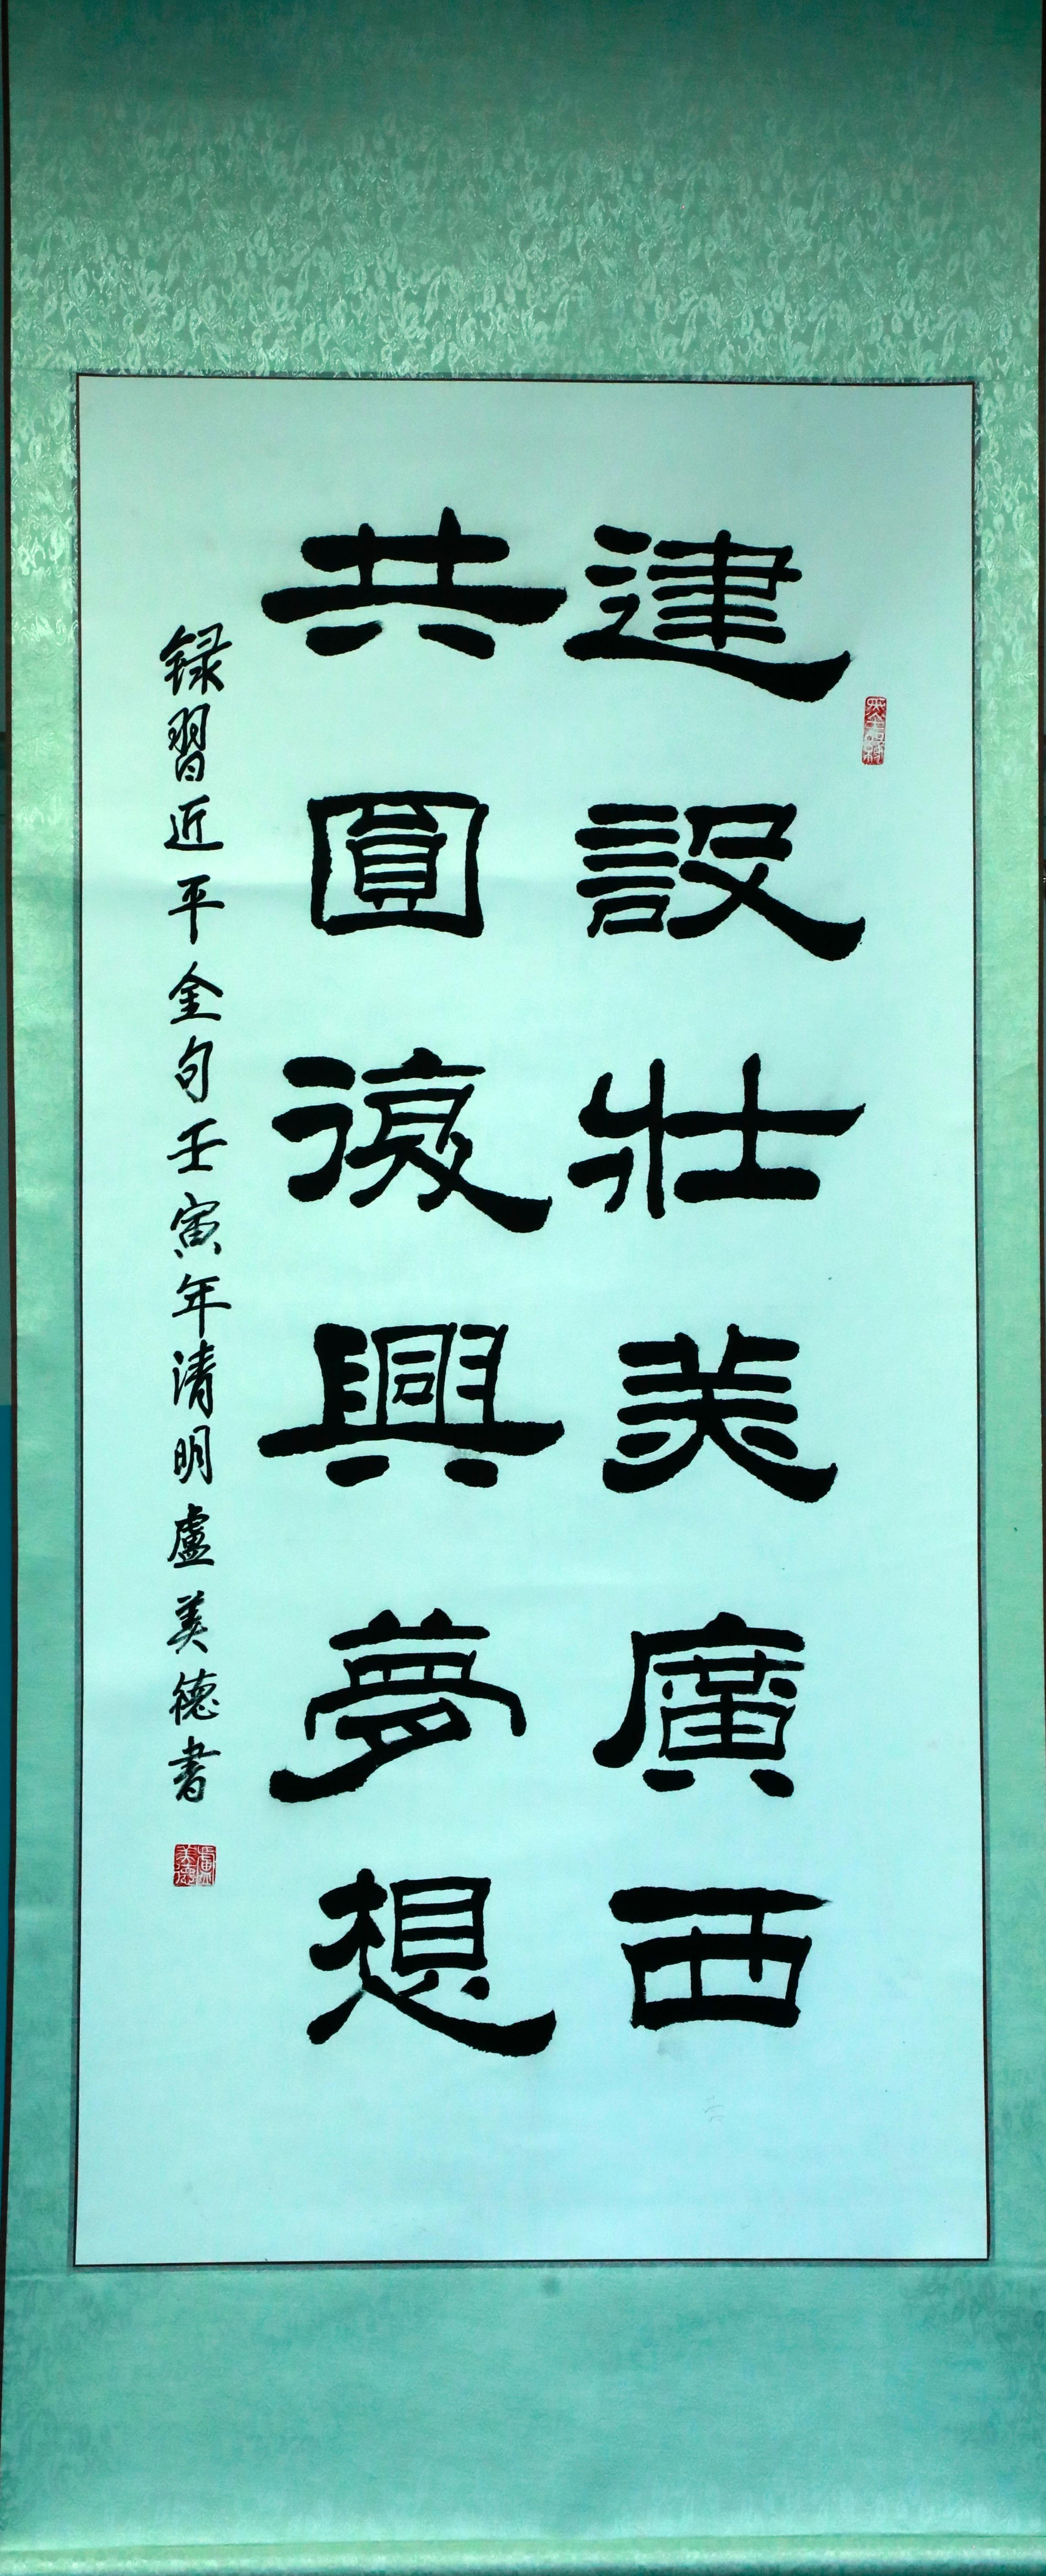 建設壯美廣西
共圓復興夢想
録習近平金句壬寅年清明盧美德書
盧美德